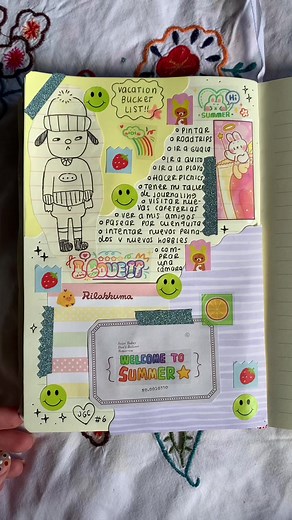 VACATION
BUCKET
LIST!!
Hi
SUMMER
PINTAR
ROADTRIPS
IR A GUAJA
IR A
IR A LA PLAYA
HACER PICNICS
TENER MI TALLER
DE JOURNALING
VISITAR NUE-
VAS CAFETERÍAS
VER A MIS AMIGOS
PASEAR POR
INTENTAR NUEVOS PEINA-
DOS Y NUEVOS HOBBIES
COM-
PRAR
UNA
CÁMARA
Rilakkuma
WELCOME TO
SUMMER
#6